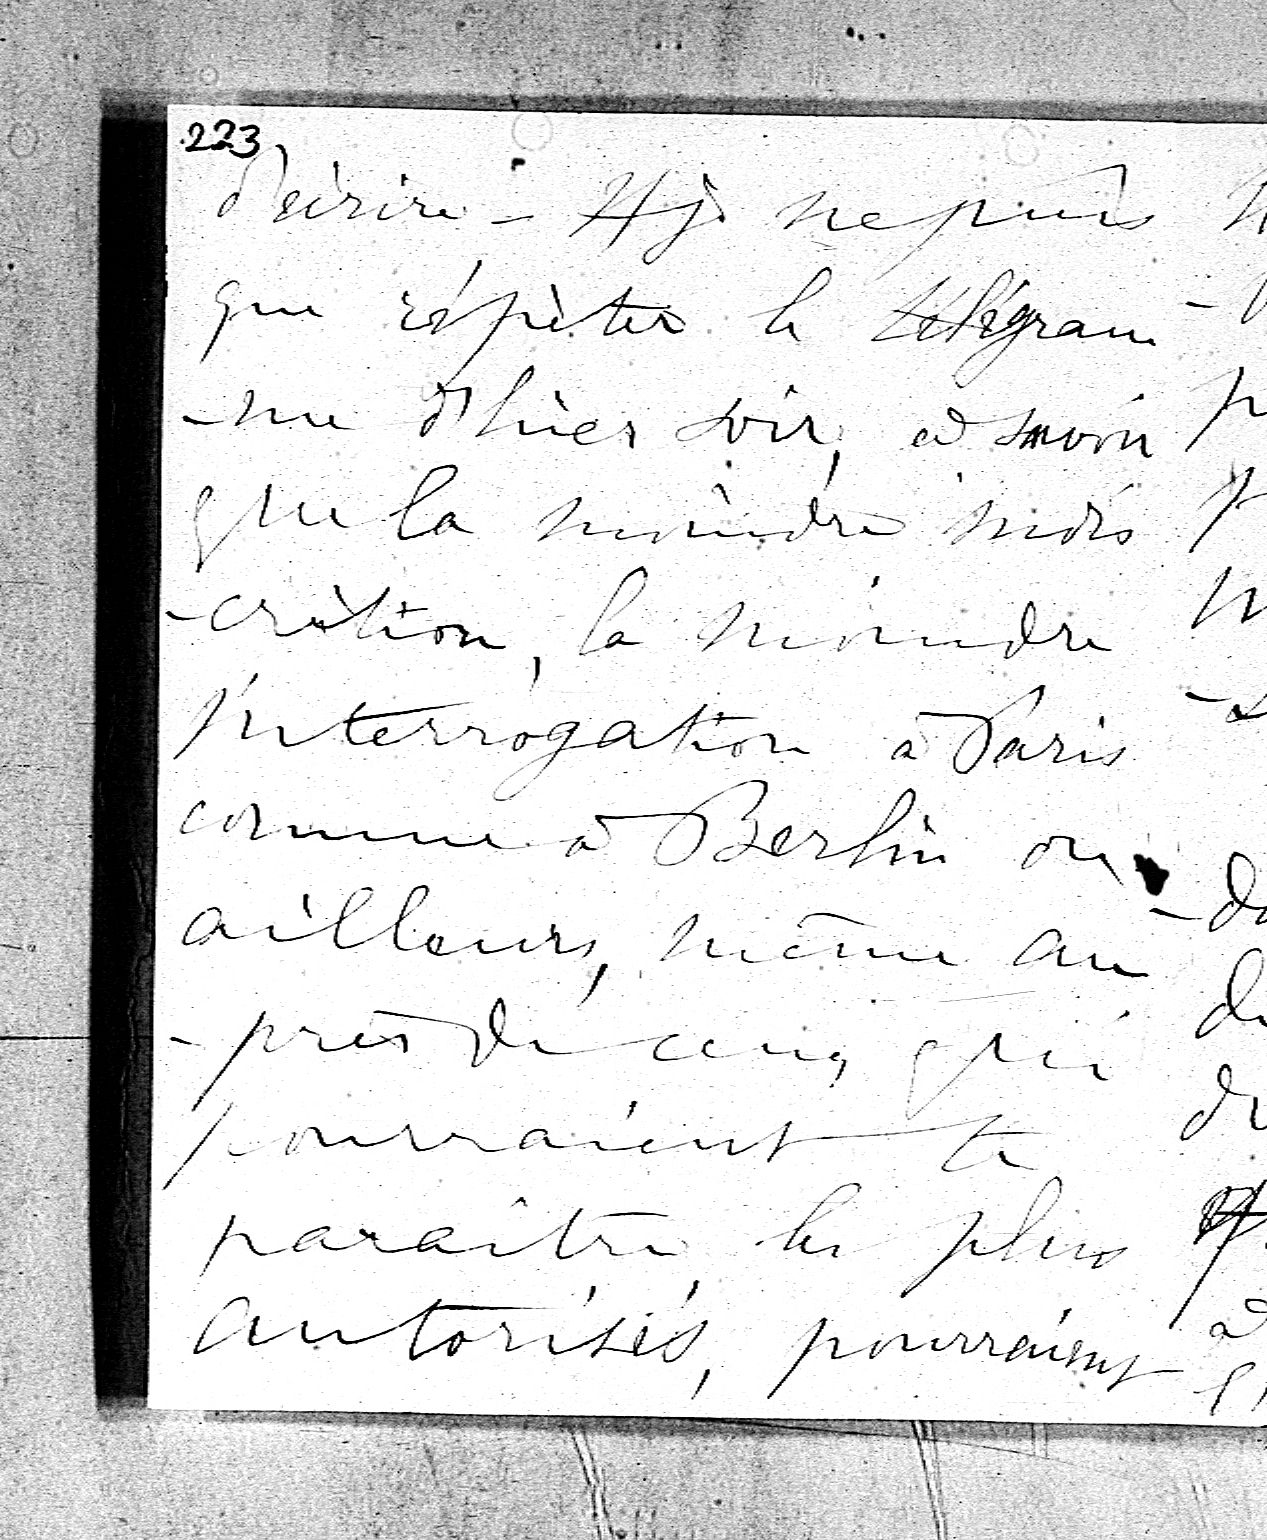 223
d'écrire - # je ne puis
que répèter le télégram
-me d'hier soir, à savoir
que la moindre indis
-crètion, la moindre
interrogation à Paris
comme à Berlin ou
ailleurs, même au
-près de ceux qui
pourraient te
paraître les plus
autorisés, pourraient